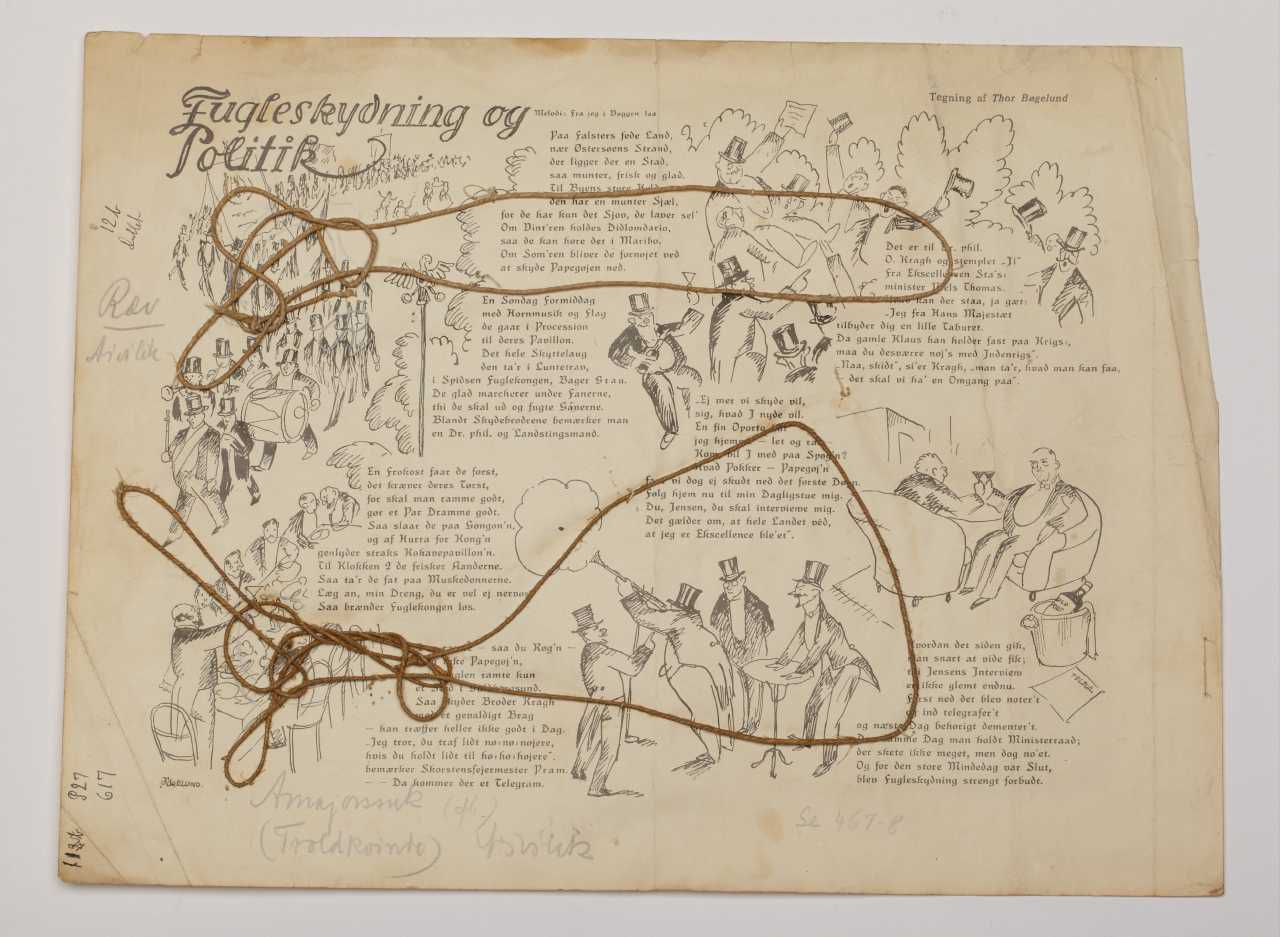 Fugleskydning og
Politik
Melodi: Fra jeg i Vuggen laa
Tegning af Thor Bøgelund
Paa Falsters fede Land,
nær Østersøens Strand,
der ligger der en Stad,
saa munter, frisk og glad.
Til Byens store
den har en munter Sjæl,
for de har kun det Sjov, de laver sel'
Om Vint'ren holdes Didlomdario,
saa de kan høre der i Maribo.
Om Som'ren bliver de fornøjet ved
at skyde Papegøjen ned.
En Søndag Formiddag
med Hornmusik og Flag
de gaar i Procession
til deres Pavillon.
Det hele Skyttelaug
den ta'r i Luntetrav,
i Spidsen Fuglekongen, Bager Grau.
De glad marcherer under Fanerne,
thi de skal ud og fugte Ganerne.
Blandt Skydebrødrene bemærker man
en Dr. phil. og Landstingsmand.
En Frokost faar de først,
det kræver deres Tørst,
for skal man ramme godt,
gør et Par Dramme godt.
Saa slaar de paa Gongon'n,
og af Hurra for Kong'n
genlyder straks Kohavepavillon'n.
Til Klokken 2 de frisker Aanderne.
Saa ta'r de fat paa Muskedonnerne.
Læg an, min Dreng, du er vel ej nervøs
Saa brænder Fuglekongen løs.
— saa du Røg'n —
Papegøj'n,
ramte kun
Saa skyder Broder Kragh
gevaldigt Brag
— han træffer heller ikke godt i Dag.
„Jeg tror, du traf lidt hø:hø:højere,
hvis du holdt lidt til hø:hø:højere".
bemærker Skorstensfejermester Pram.
— — Da kommer der et Telegram.
Det er til Dr. phil.
O. Kragh og stemplet „Il"
fra Ekscellencen Sta's:
minister Niels Thomas.
kan der staa, ja gæt:
„Jeg fra Hans Majestæt
tilbyder dig en lille Taburet.
Da gamle Klaus han holder fast paa Krigs:,
maa du desværre nøj's med Indenrigs".
„Naa, skidt", si'er Kragh, „man ta'r, hvad man kan faa,
— det skal vi ha' en Omgang paa".
„Ej mer vi skyde vil,
sig, hvad I nyde vil.
En fin Oporto
jeg hjemme — let og
Kom, vil I med paa Spøg'n?
Hvad Pokker — Papegøj'n
vi dog ej skudt ned det første Døgn.
Følg hjem nu til min Dagligstue mig.
Du, Jensen, du skal interviewe mig.
Det gælder om, at hele Landet véd,
at jeg er Ekscellence ble'et".
Hvordan det siden gik,
man snart at vide fik;
Jensens Interview
er ikke glemt endnu.
Først ned det blev noter't
ind telegrafer't
og næste Dag behørigt dementer't.
Dag man holdt Ministerraad;
der skete ikke meget, men dog no'et.
Og før den store Mindedag var Slut,
blev Fugleskydning strengt forbudt.
BØGELUND.
12b
Ræv
Aivilik
P27
617
Amajorssuk
(Troldkvinde)
Se 467-8